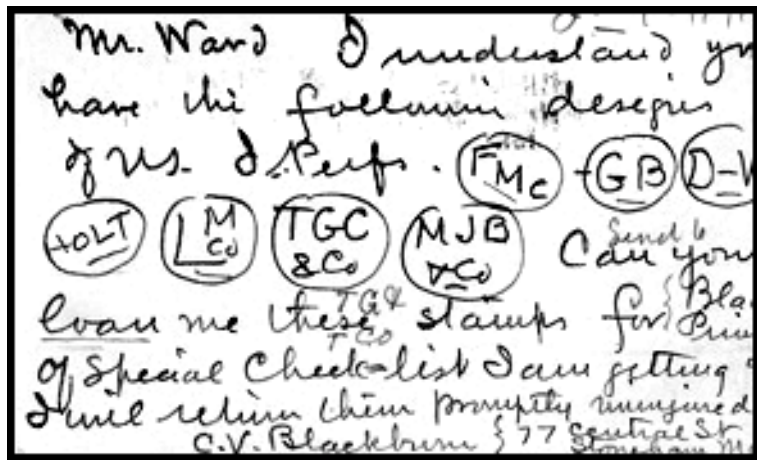 Mr. Ward I understand
have the following designs
of U.S. I. Perfs. FMC GB D-
HOLT LM Co TGC & Co MJB & Co
Send 6
Can you
loan me these stamps for
TG &
T Co
of Special Check-list I am getting
I will return them promptly uninjured
C.V. Blackburn 77 Central St
Stoneham